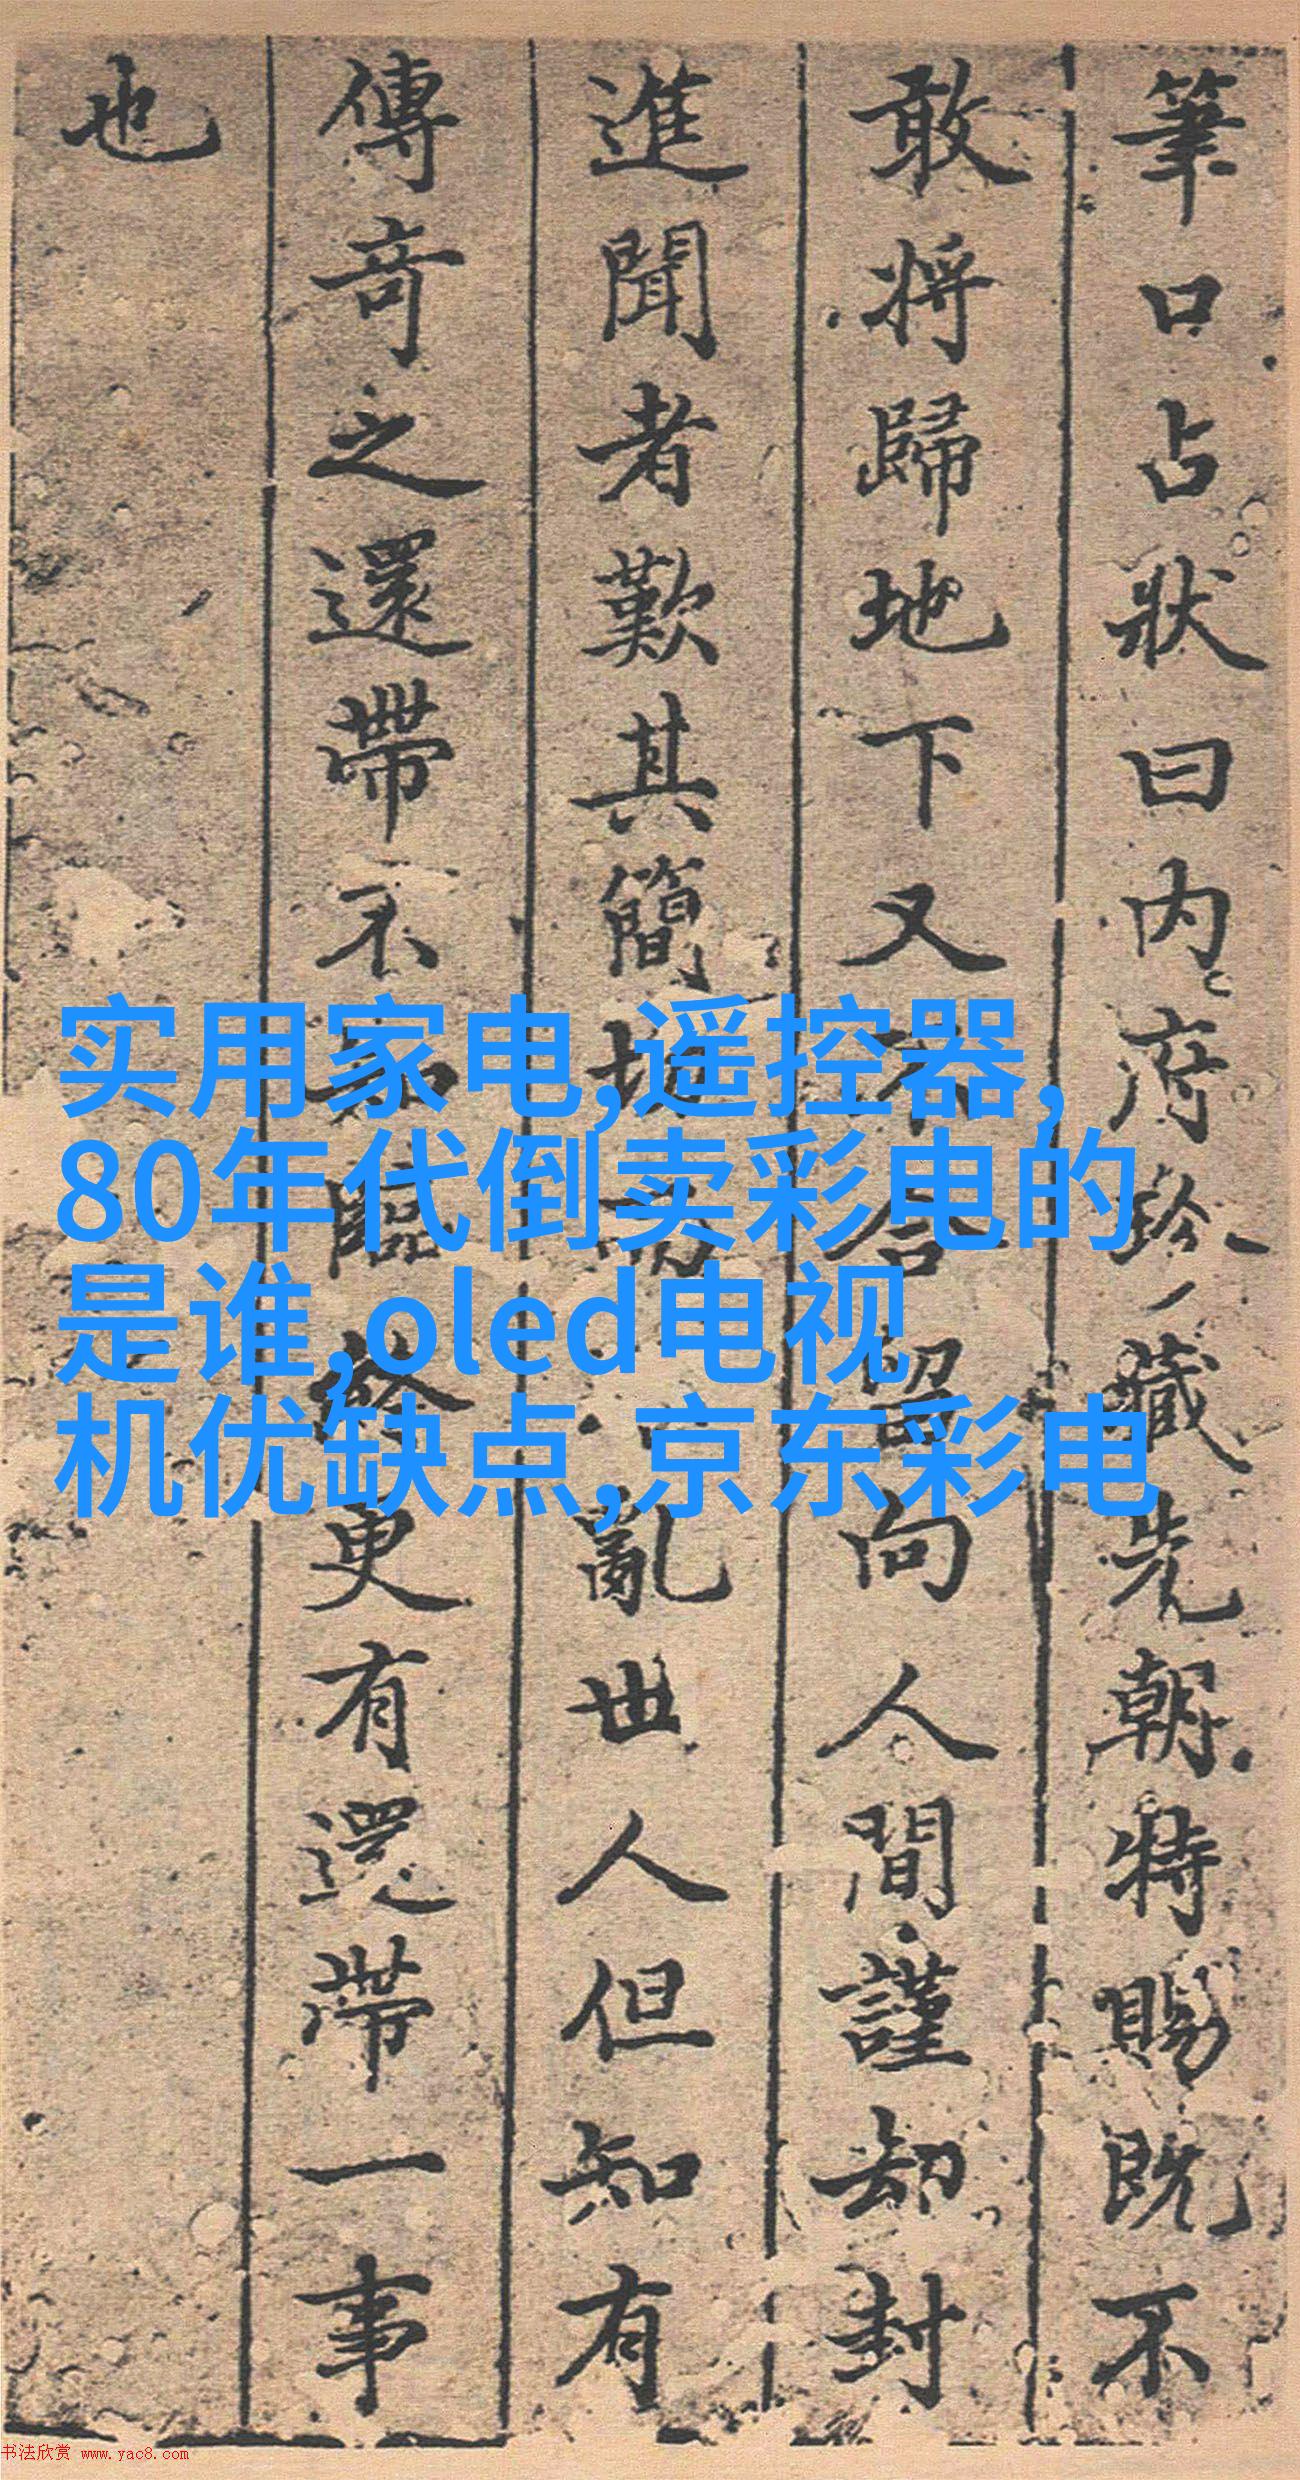 筆口占狀曰内府珍藏先朝特賜既不
敢將歸地下又不合留向人間謹却封
進聞者歎其簡切而亂世人但知有
傳奇之還帶不知臨終更有還帶一事
也
实用家电,遥控器,
80年代倒卖彩电的
是谁,oled电视
机优缺点,京东彩电
书法欣赏 www.yac8.com